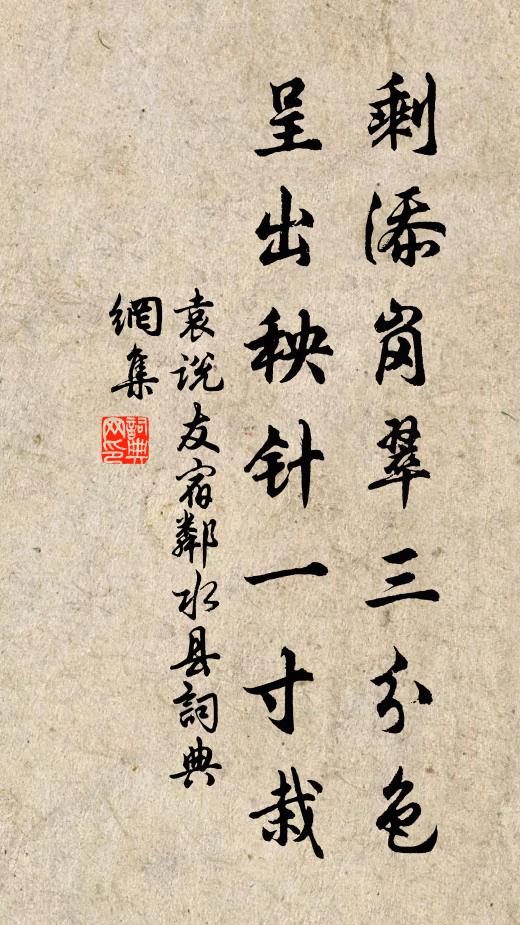 剩添岗翠三分色
呈出秧针一寸栽
袁说友宿鄰水县詞典
網集
詞典
网印